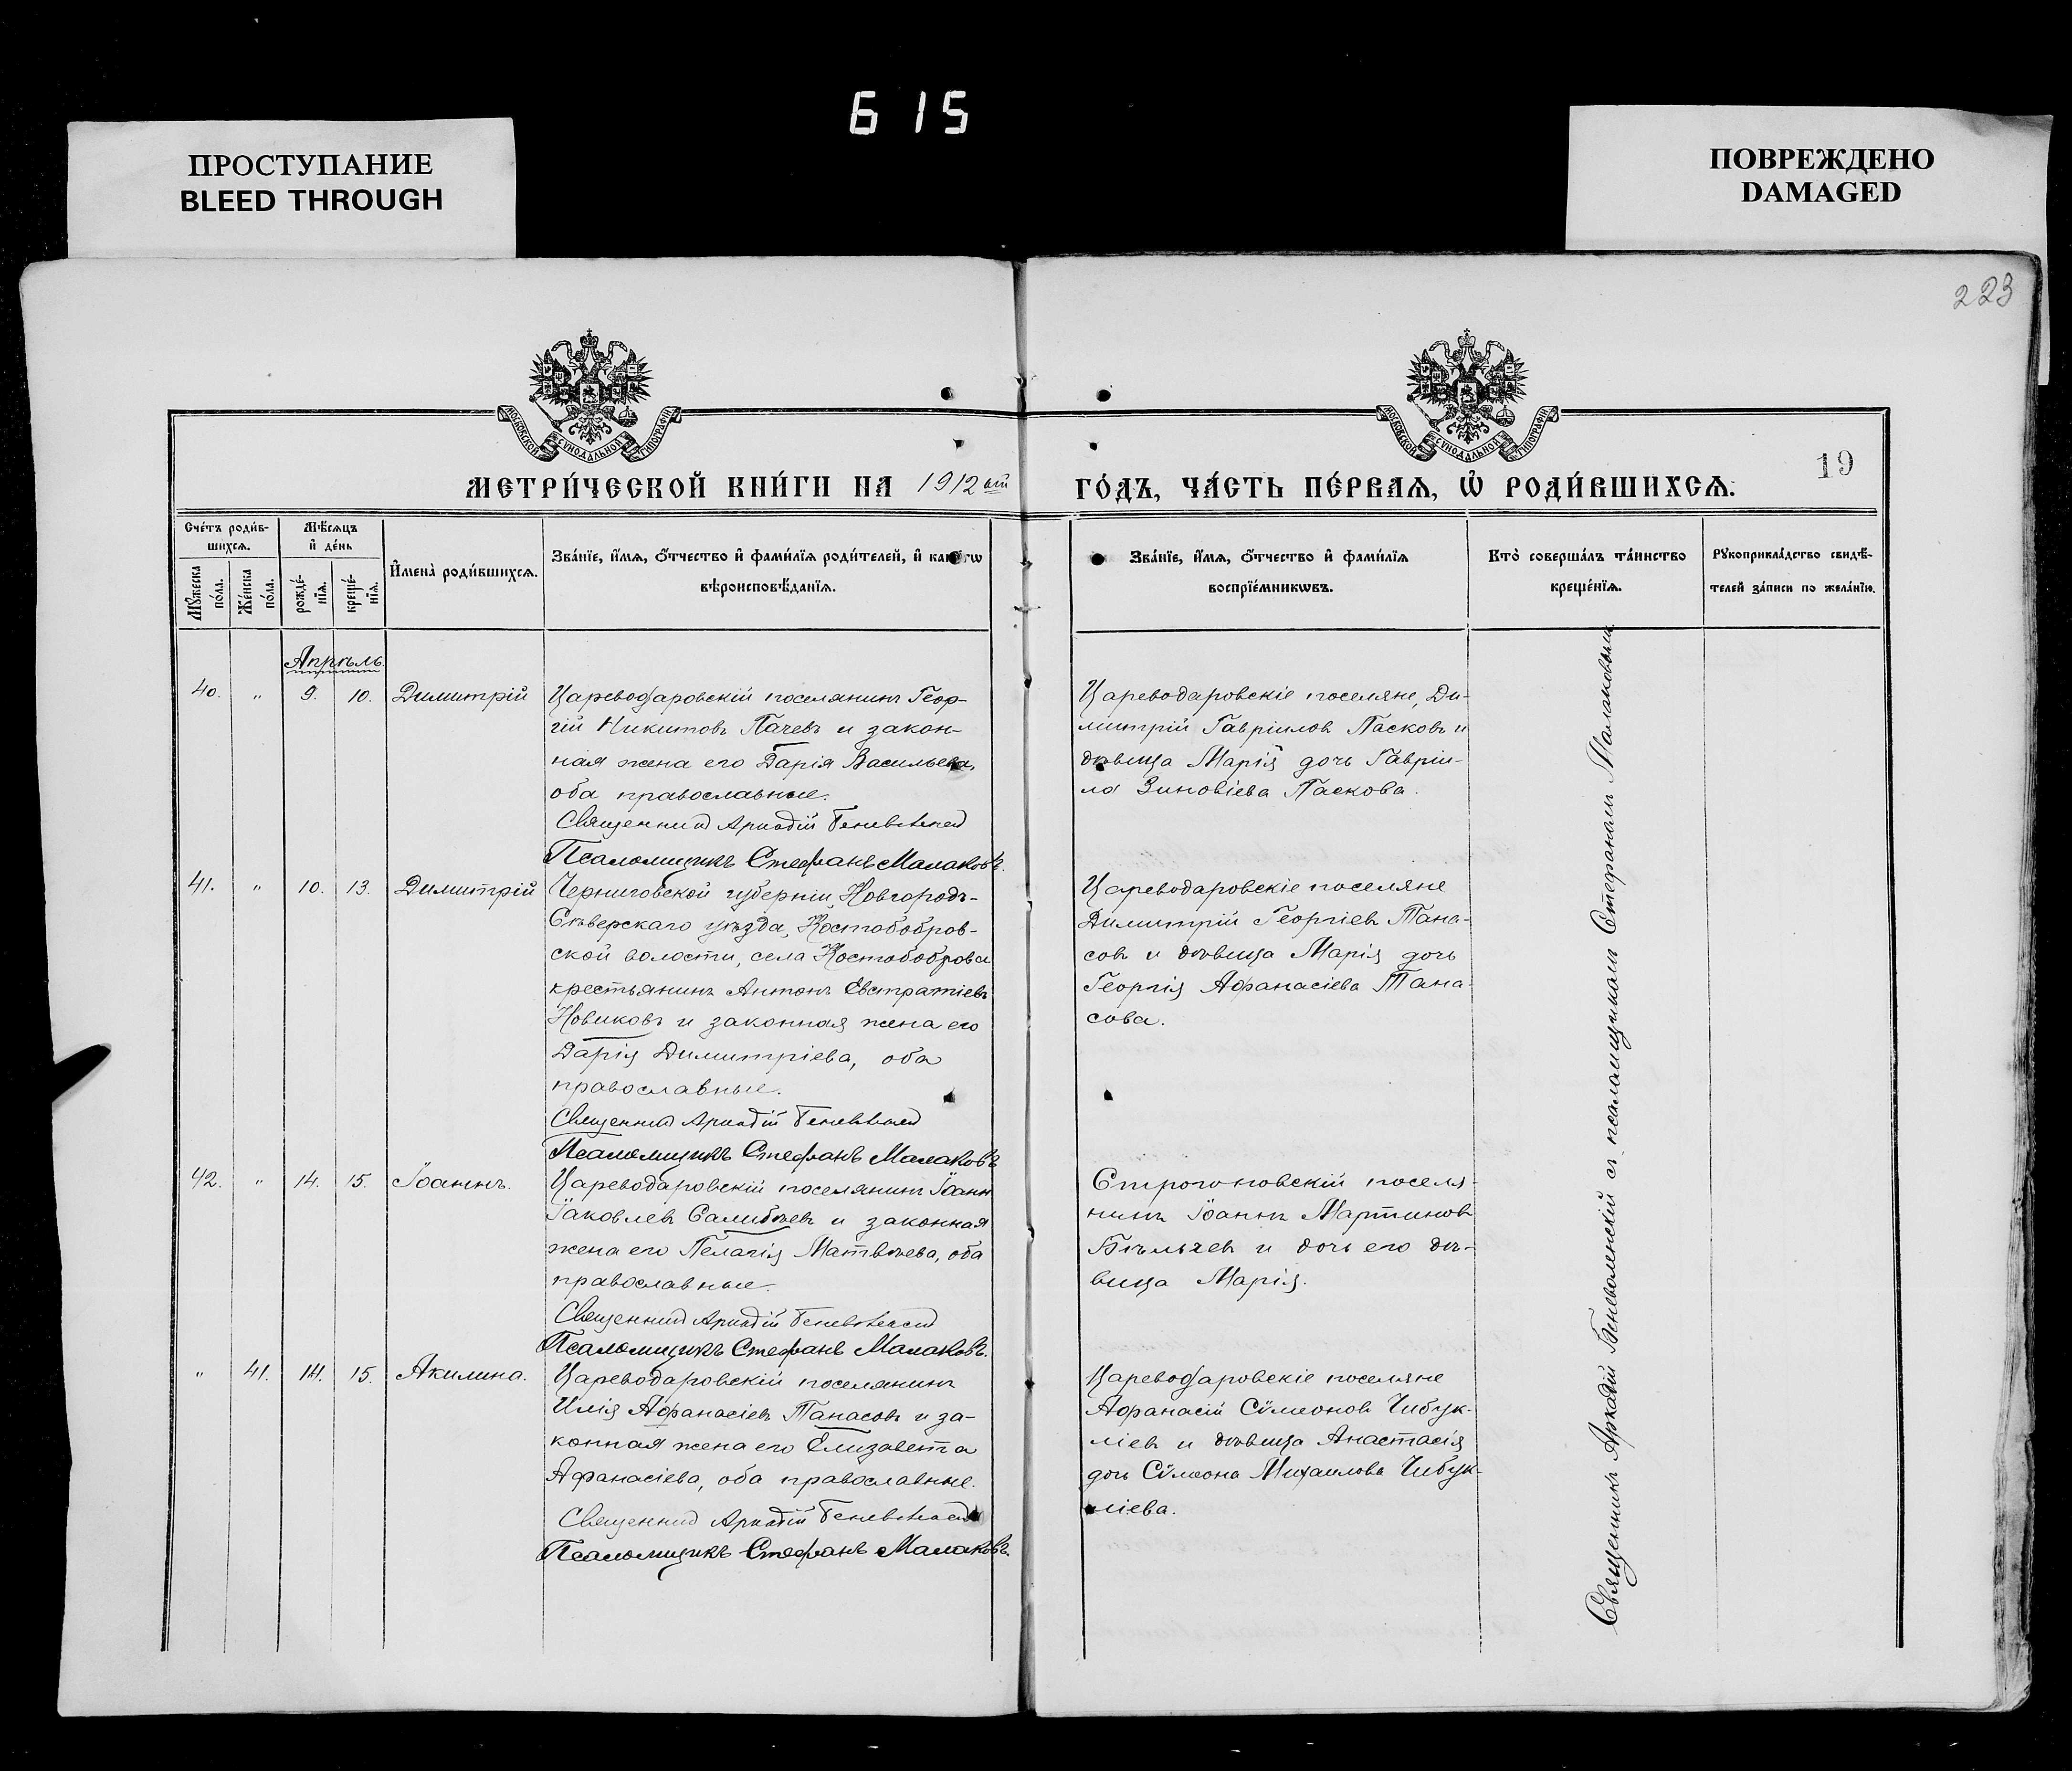 615
ПРОСТУПАНИЕ
BLEED THROUGH
ПОВРЕЖДЕНО
DAMAGED
223
МОСКОВСКОЙ СѴНОДАЛЬНОЙ ТИПОГРАФІИ
МОСКОВСКОЙ СѴНОДАЛЬНОЙ ТИПОГРАФІИ
19
МЕТРИ́ЧЕСКОЙ КНИ́ГИ НА 1912 ый
ГО́ДЪ, ЧА́СТЬ ПЕ́РВАѦ, Ѡ҆ РОДИ́ВШИХСѦ.
Сче́тъ роди́в-
шихсѧ.
Мꙋ́жеска
по́ла.
Же́нска
по́ла.
Мѣ́сѧцъ
и҆ де́нь
рожде́-
нїѧ.
креще́-
нїѧ.
И҆мена̀ роди́вшихсѧ.
Зва́нїе, и҆́мѧ, ѻ҆́тчество и҆ фами́лїѧ роди́телей, и҆ како́гѡ
вѣроисповѣ́данїѧ.
Зва́нїе, и҆́мѧ, ѻ҆́тчество и҆ фами́лїѧ
воспрїе́мникѡвъ.
Кто̀ соверша́лъ та́инство
креще́нїѧ.
Рꙋкоприкла́дство свидѣ́-
телей за́писи по жела́нїю.
Апрѣль.
40. " 9. 10. Димитрій
Цареводаровскій поселянинъ Геор-
гій Никитовъ Пачевъ и закон-
ная жена его Дарія Васильева,
оба православные.
Священникъ Аркадій Беневоленскій
Псаломщикъ Стефанъ Малаковъ.
Цареводаровскіе поселяне, Ди-
митрій Гавріиловъ Пасковъ и
дѣвица Марія дочь Гавріи-
ла Зиновіева Паскова.
41. " 10. 13. Димитрій
Черниговской губерніи, Новгородъ-
Сѣверскаго уѣзда, Костобобров-
ской волости, села Костобоброва
крестьянинъ Антонъ Евстратіевъ
Новиковъ и законная жена его
Дарія Димитріева, оба
православные.
Священникъ Аркадій Беневоленскій
Псаломщикъ Стефанъ Малаковъ
Цареводаровскіе поселяне
Димитрій Георгіевъ Тана-
совъ и дѣвица Марія дочь
Георгія Афанасіева Тана-
сова.
42. " 14. 15. Іоаннъ.
Цареводаровскій поселянинъ Іоаннъ
Іаковлевъ Салибаевъ и законная
жена его Пелагія Матвѣева, оба
православные.
Священникъ Аркадій Беневоленскій
Псаломщикъ Стефанъ Малаковъ.
Строгоновскій поселя-
нинъ Іоаннъ Мартиновъ
Бѣльчевъ и дочь его дѣ-
вица Марія.
" 41. 14. 15. Акилина.
Цареводаровскій поселянинъ
Илія Афанасіевъ Танасовъ и за-
конная жена его Елизавета
Афанасіева, оба православные.
Священникъ Аркадій Беневоленскій
Псаломщикъ Стефанъ Малаковъ.
Цареводаровскіе поселяне
Афанасій Сѵмеоновъ Чибук-
ліевъ и дѣвица Анастасія
дочь Сѵмеона Михаилова Чибук-
ліева.
Священникъ Аркадій Беневоленскій съ псаломщикомъ Стефаномъ Малаковымъ.